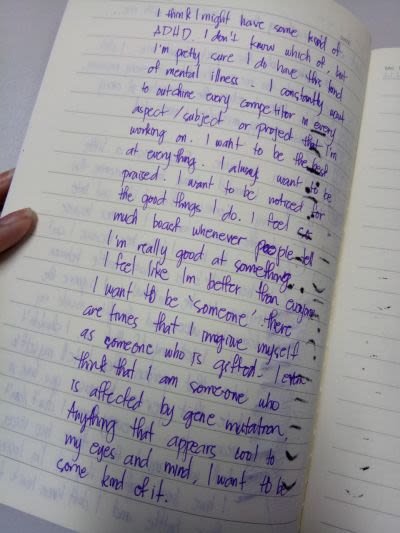 I think I might have some kind of
ADHD. I don't know which of, but
I'm pretty sure I do have this kind
of mental illness. I constantly want
to outshine every competitor in every
aspect / subject or project that I'm
working on. I want to be the best
at everything. I always want to be
praised. I want to be noticed for
the good things I do. I feel
much boost whenever people tell
I'm really good at something.
I feel like Im better than everyone.
I want to be 'someone'. There
are times that I imagine myself
as someone who is gifted. I even
think that I am someone who
is affected by gene mutation.
Anything that appears cool to
my eyes and mind, I want to be
some kind of it.